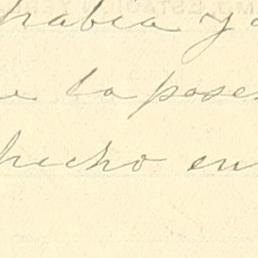 había y
la pose
hecho en